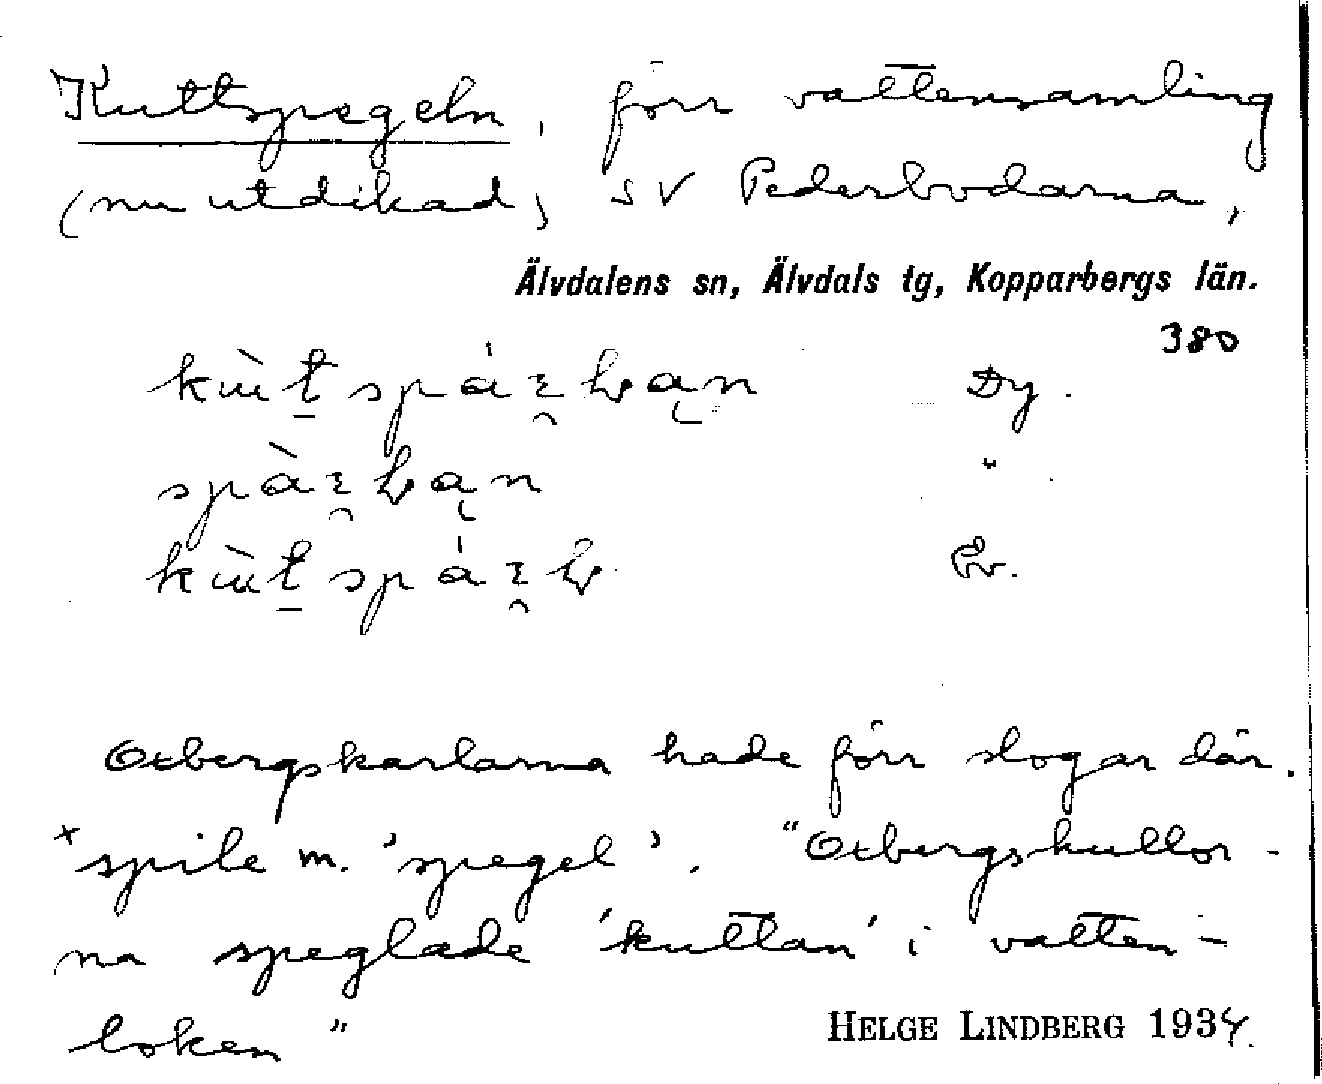 Kuttspegeln, förr vattensamling
(nu utdikad) SV Pederbodarna,
Älvdalens sn, Älvdals tg, Kopparbergs län.
380
Dy.
"
Ev.
Oxbergskarlarna hade förr slogar där.
*spile m. 'spegel'. "Oxbergskullor-
na speglade 'kuttan' i vatten-
loken"
HELGE LINDBERG 1934.